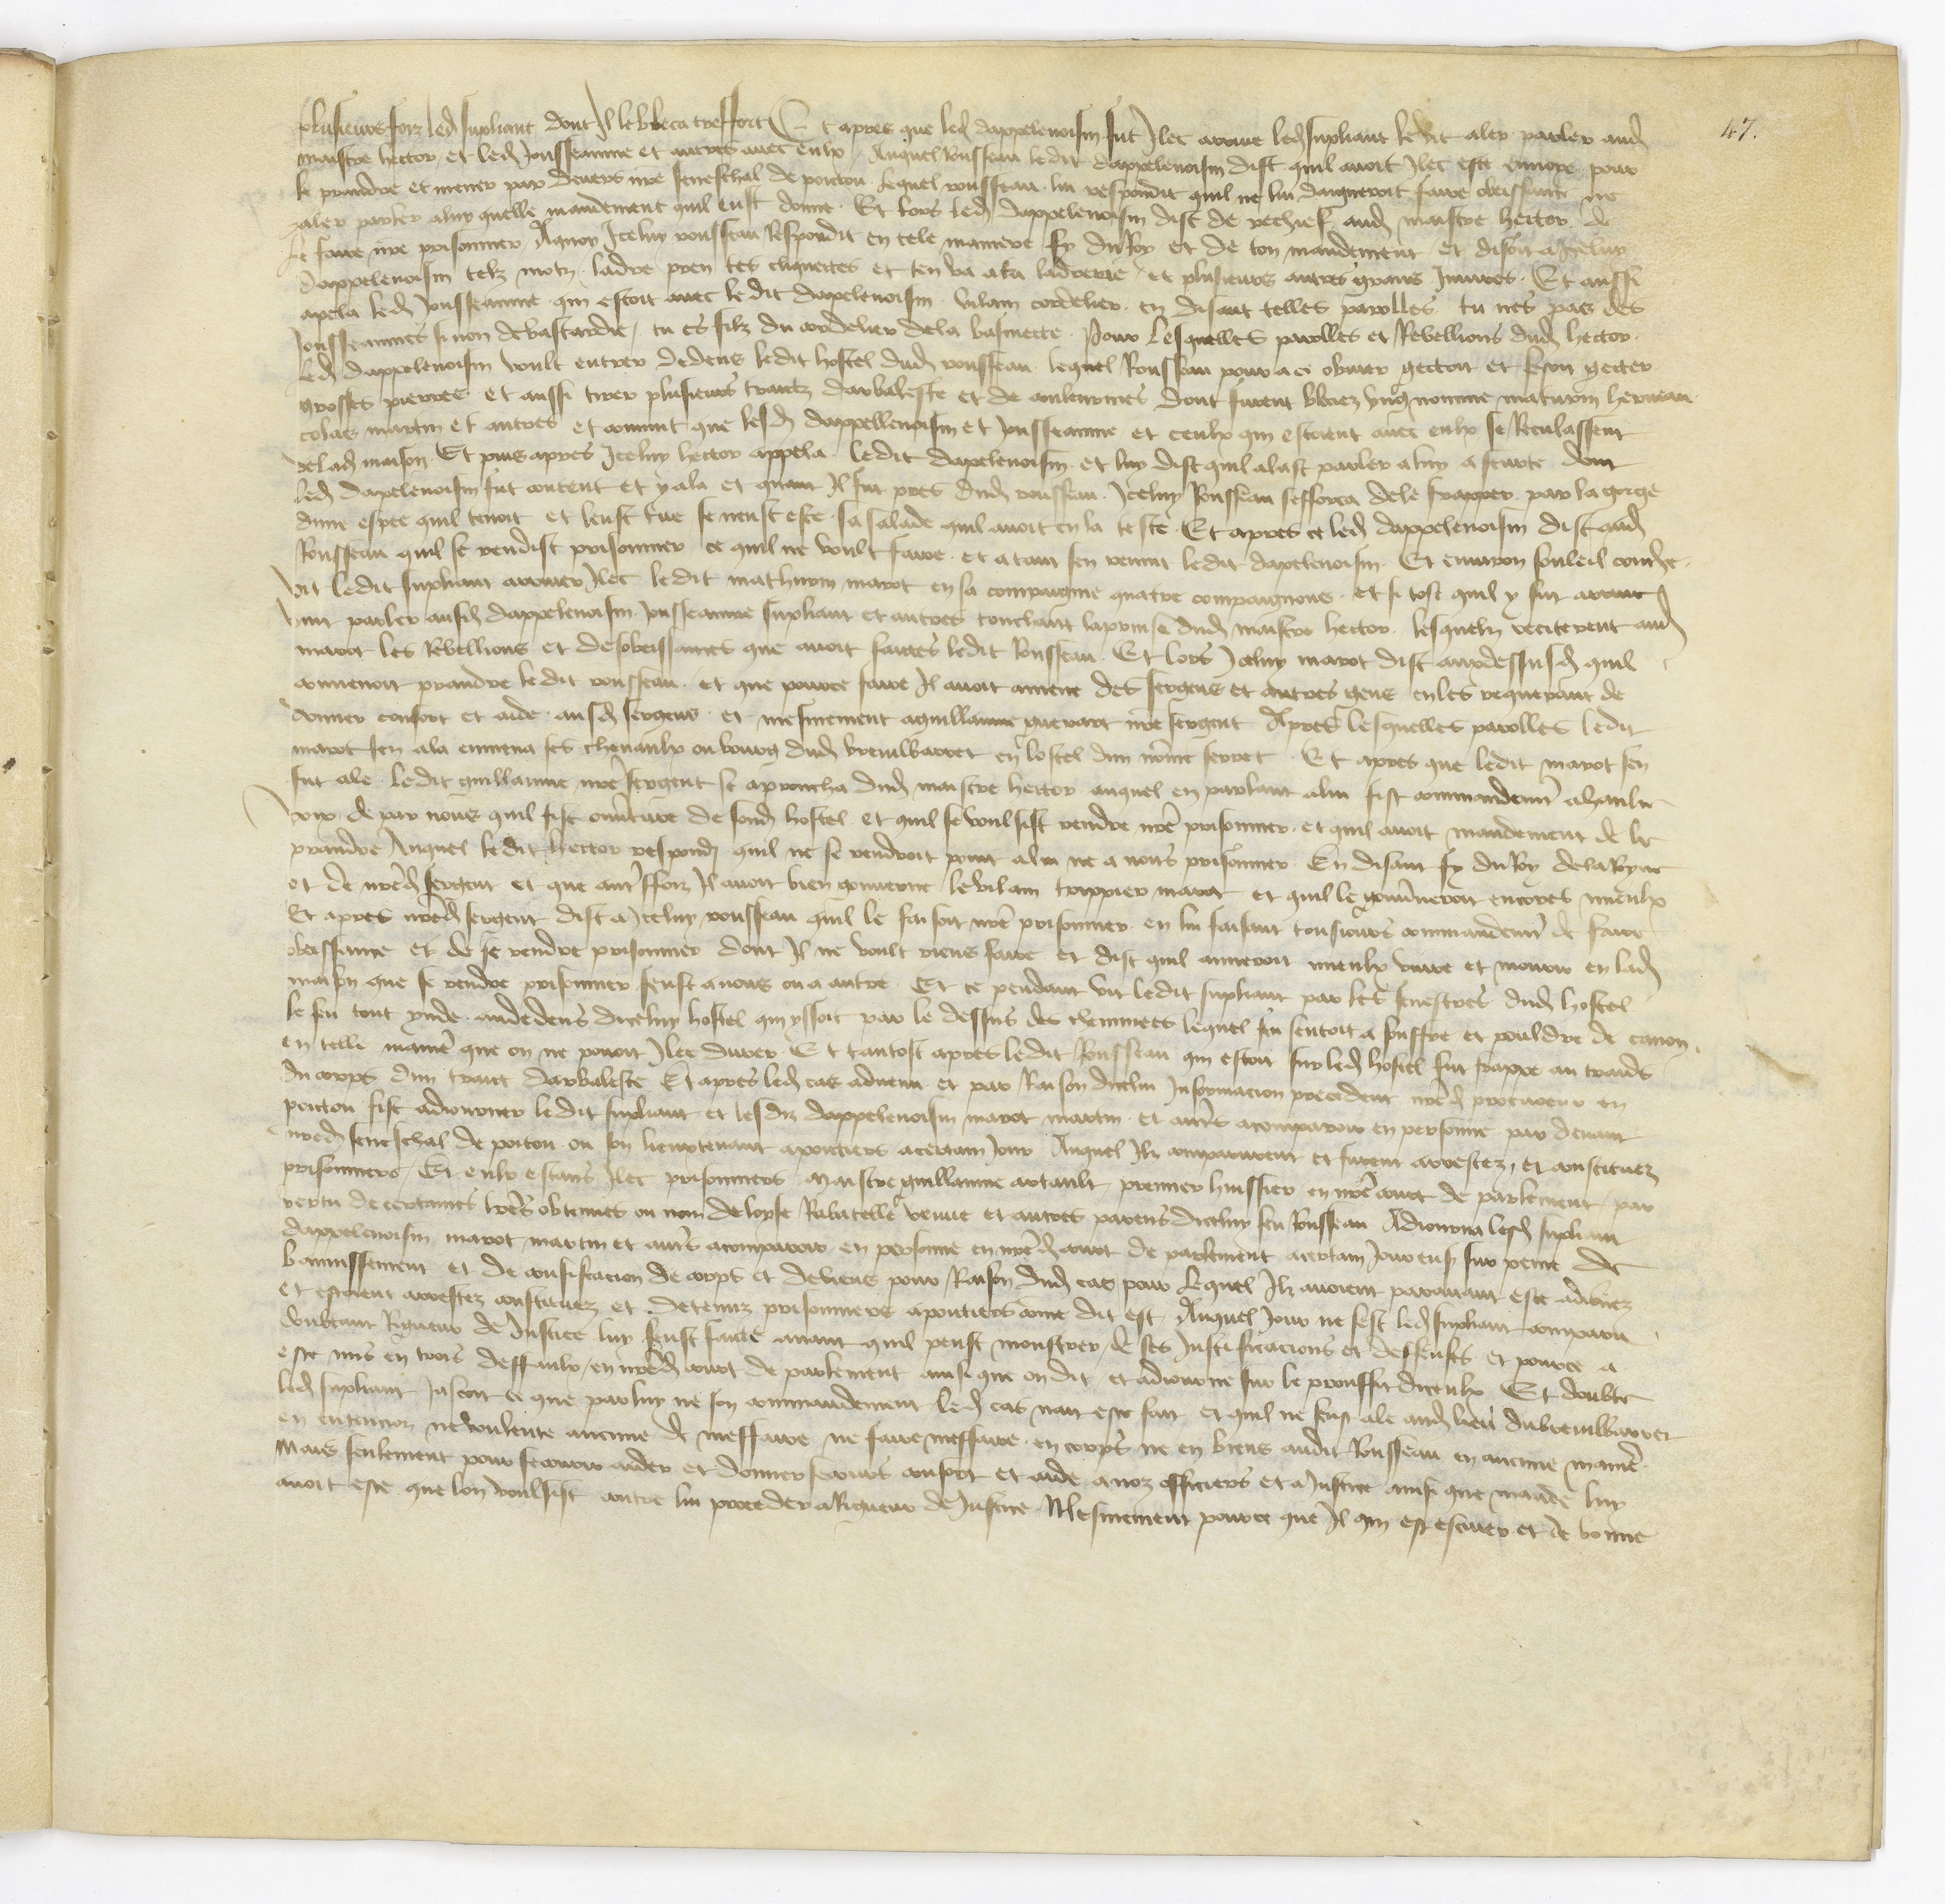 47.
plusieurs foiz led suppliant dont Il le bleca tresfort Et apres que led dappelvoisin fut Ilec arrive led suppliant le vit aler parler aud
maistre hector et led Jousseaume et autres avec eulx Auquel Rousseau ledit dappelvoisin dist quil avoit Ilec este envoye pour
le prandre et mener par devers nre seneschal de poictou lequel rousseau lui respondit quil ne lui daigneroit faire obeissance ne
aler parler a luy quelle mandement quil eust donne Et lors led dappelvoisin dist de rechief aud maistre hector de
le faire nre prisonnier Aquoy Iceluy rousseau Respondit en tele maniere fy du Roy et de ton mandement et disoit a Iceluy
dappelvoisin telz motz ladre pren tes cliquectes et ten va a ta ladrerie et plusieurs autres grans Injures Et aussi
apela led Jousseaume qui estoit avec le dit dapelvoisin vilain cordelier en disant telles parolles tu nes pas des
Jousseaumes si non de bastardie tu es filz du cordelier dela basmecte Pour lesquelles parolles et Rebellions dud hector
led dappelvoisin voult entrer dedens ledit hostel dud rousseau lequel Rousseau pour a ce obvier gectoit et fesoit gecter
grosses pierres et aussi tirer plusieurs traictz darbaleste et de couleuvrines dont furent blecez ung nomme maturin herveau
colas martin et autres et convint que lesd dappellvoisin et Jousseaume et ceulx qui estoient avec eulx se Reculassent
de lad maison Et puis apres Iceluy hector appela ledit dapelvoisin et luy dist quil alast parler a luy a seurte dont
led dapelvoisin fut content et y ala et quant Il fut pres dud rousseau Iceluy Rousseau sefforca dele frapper par la gorge
dune espee quil tenoit et leust tue se neust este sa salade quil avoit en la teste Et apres ce led dappelvoisin dist aud
Rousseau quil se rendist prisonnier ce quil ne voult faire et a tant sen revint ledit dapelvoisin Et environ souleil couche
vit ledit supliant arriver Ilec ledit mathurin marot en sa compaignie quatre compaignons et si tost quil y fut arrive
vint parler ausd dappelvoisin Jousseaume supliant et autres touchant la prinse dud maistre hector lesquelz reciterent aud
marot les Rebellions et desobeissances que avoit faictes ledit Rousseau Et lors Iceluy marot dist aux dessusd quil
convenoit prandre ledit rousseau et que pource faire Il avoit amene des sergens et autres gens en les requerant de
donner confort et aide ausd sergens et mesmement a guillaume guerart nre sergent Apres lesquelles parolles ledit
marot sen ala emmena ses chevaulx ou bourg dud breuilbarret en lostel dun nomme ferret Et apres que ledit marot sen
fut ale ledit guillaume nre sergent se aproucha dud maistre hector auquel en parlant a lui fist commandement a haulte
voix de par nous quil fist ouverture de sond hostel et quil se voulsist rendre nre prisonnier et quil avoit mandement de le
prandre Auquel ledit hector respondi quil ne se rendroit point a lui ne a nous prisonnier En disant fy du Roy dela Royne
et de nred sergent et que autresfoiz Il avoit bien gouverne le vilain trippier marot et quil le gouverneroit encores mieulx
Et apres nred sergent dist a Iceluy rousseau quil le faisoit nre prisonnier en lui faisant tousiours commandement de faire
obeissance et de se rendre prisonnier dont Il ne voult riens faire et dist quil aimeroit mieulx vivre et mourir en lad
maison que se rendre prisonnier feust a nous ou a autre Et ce pendant vit ledit supliant par les fenestres dud hostel
le feu tout ynde audedens diceluy hostel qui yssoit par le dessus des cheminees lequel feu sentoit a souffre et pouldre de canon
en telle maniere que on ne povoit Ilec durer Et tantost apres ledit Rousseau qui estoit sur led hostel fut frappe au travers
du corps dun traict darbaleste Et apres led cas advenu et par Raison dicelui Informacion precedent nred procureur en
poictou fist adiourner ledit supliant et lesdiz dappelvoisin marot martin et autres a comparoir en personne par devant
nred seneschal de poitou ou son lieutenant a poictiers a certain Jour Auquel Ilz comparurent et furent arrestez et constituez
prisonniers Et eulx estans Ilec prisonniers maistre guillaume artault premier huissier en nre court de parlement par
vertu de certaines lectres obtenues ou nom de loyse Rabatelle vefve et autres parens diceluy feu Rousseau Adiourna lesd supliant
dappelvoisin marot martin et autres a comparoir en personne en nred court de parlement a certain Jour ensuivant sur peine de
bannissement et de confiscacion de corps et de biens pour Raison dud cas pour lequel Ilz avoient paravant este adiournez
et estoient arrestez constituez et detenuz prisonniers a poictiers come dit est Auquel Jour ne sest led supliant comparu
doubtant Rigueur de Justice luy feust faicte avant quil peust monstrer de ses Justificacions et deffenses et pource a
este mis en trois deffaulx en nred court de parlement ainsi que on dit et adiourne sur le prouffit diceulx Et doubte
led supliant Jasoit ce que par luy ne son commandement led cas nait este fait et quil ne feust ale aud lieu du breuilbarret
en entencion ne voulente aucune de meffaire ne faire meffaire en corps ne en biens audit Rousseau en aucune maniere
Mais seulement pour secourir aider et donner secours confort et aide a noz officiers et a Justice ainsi que mande luy
avoit este que lon voulsist contre lui proceder a Rigueur de Justice Mesmement pource que Il qui est escuier et de bonne